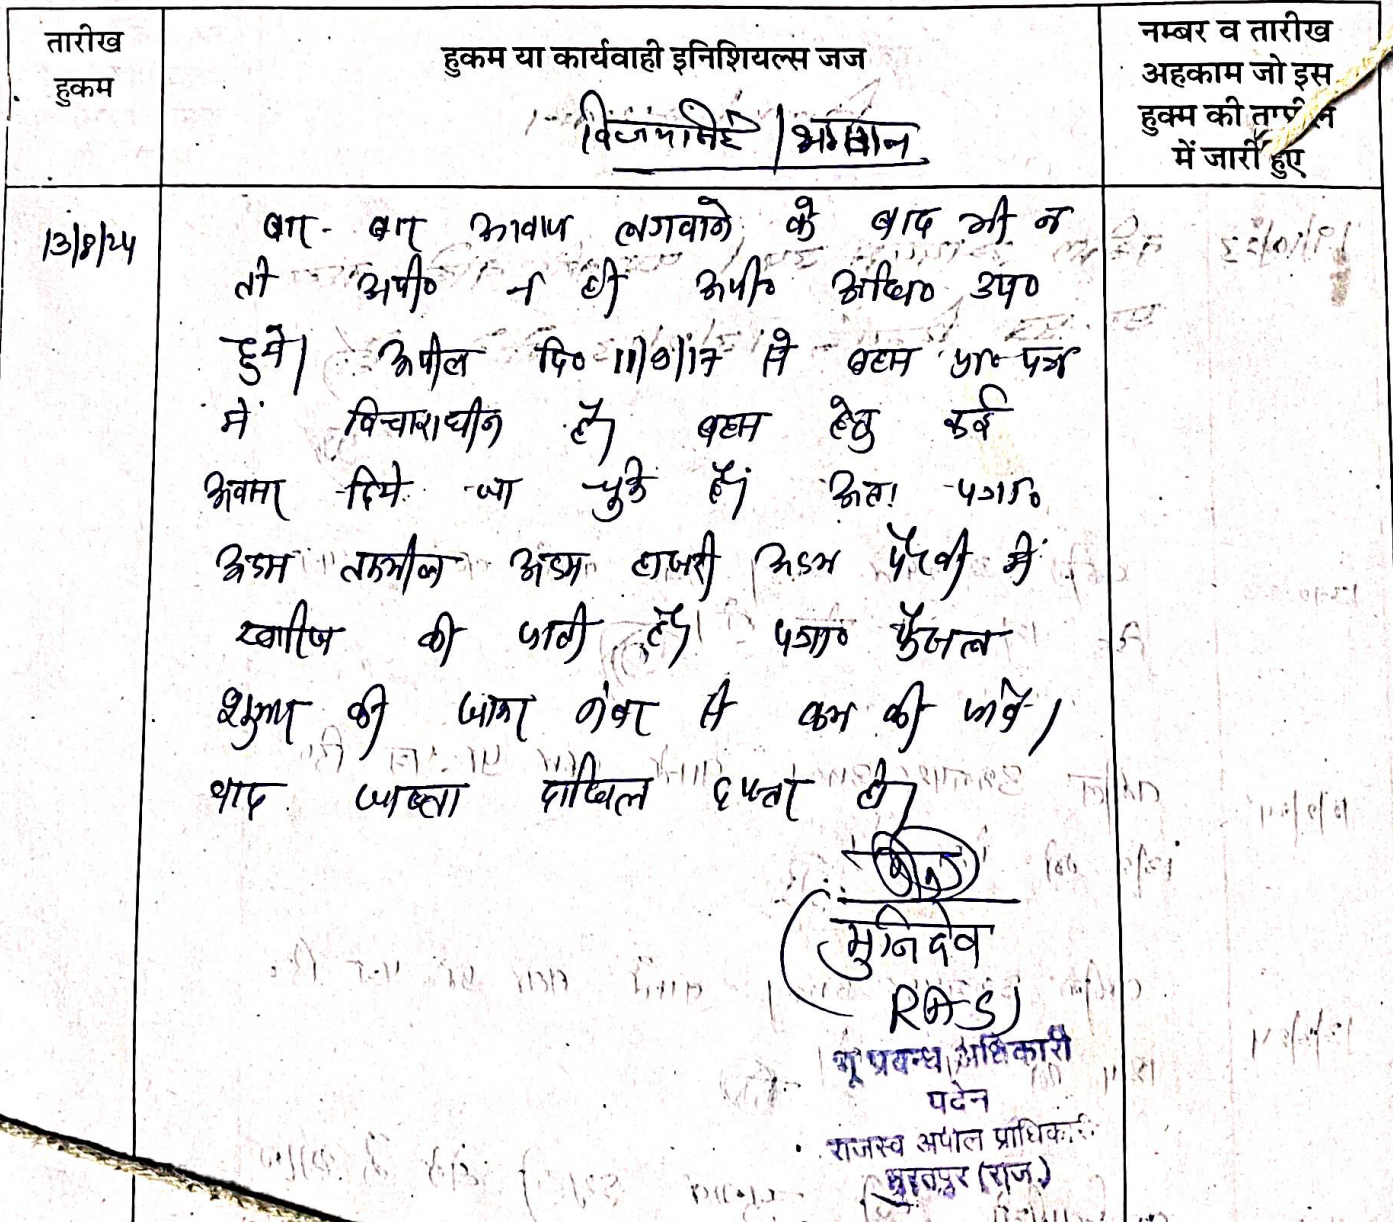 तारीख
हुकम
हुकम या कार्यवाही इनिशियल्स जज
नम्बर व तारीख
अहकाम जो इस
हुक्म की तामील
में जारी हुए
विजयसिंह / भगवान
13/8/24
बार-बार आवाज लगवाने के बाद भी न
तो अपी० न ही अपी० अधि० उप०
हुये। अपील दि० 11/9/17 से बहस प्रा० पत्र
में विचाराधीन है। बहस हेतु कई
अवसर दिये जा चुके हैं। अतः पत्रा०
अदम तकमील अदम हाजरी अदम पैरवी में
खारिज की जाती है। पत्रा० फैसल
शुमार की जाकर नंबर से कम की जावे।
बाद जाब्ता दाखिल दफ्तर हो।
(मुनिदेव
RAS)
भू प्रबन्ध अधिकारी
पदेन
राजस्व अपील प्राधिकारी
भरतपुर (राज.)